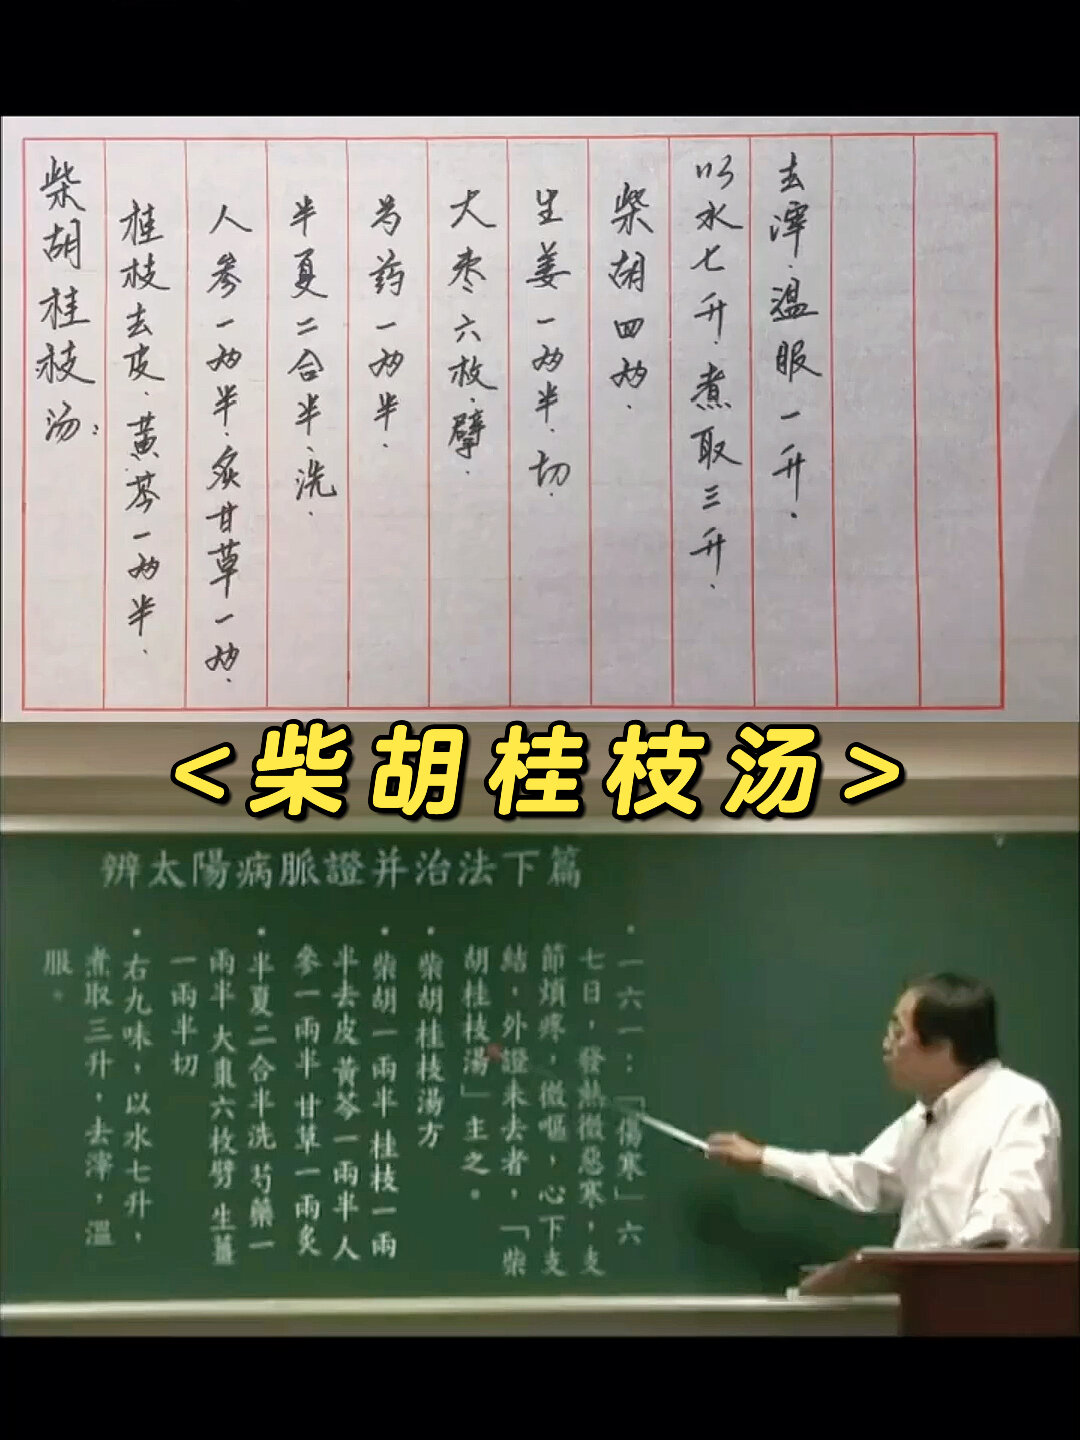 柴胡桂枝汤：
桂枝去皮．黄芩一两半．
人参一两半．炙甘草一两．
半夏二合半．洗．
芍药一两半．
大枣六枚．擘．
生姜一两半．切．
柴胡四两．
以水七升．煮取三升．
去滓．温服一升．
<柴胡桂枝汤>
辨太陽病脈證并治法下篇
·一六一：「傷寒」六
七日，發熱微惡寒，支
節煩疼，微嘔，心下支
結，外證未去者，「柴
胡桂枝湯」主之。
·柴胡桂枝湯方
·柴胡一兩半 桂枝一兩
半去皮 黃芩一兩半 人
參一兩半 甘草一兩炙
·半夏二合半洗 芍藥一
兩半 大棗六枚劈 生薑
一兩半切
·右九味，以水七升，
煮取三升，去滓，溫
服。